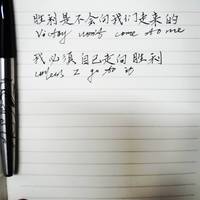 胜利是不会向我们走来的
Victory won't come to me
我必须自己走向胜利
unless I go to it